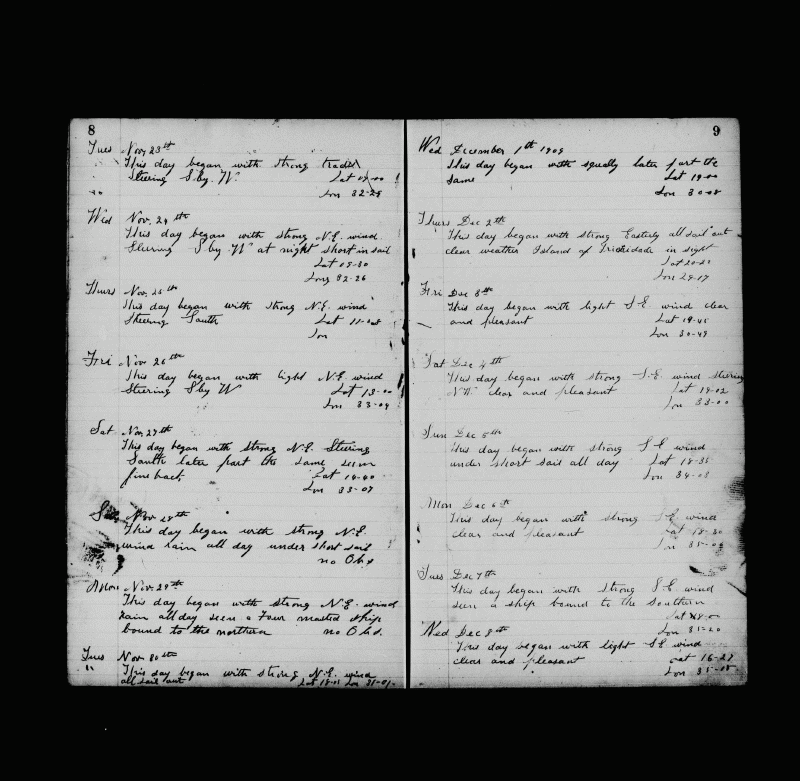 8
Tues Nov, 23rd
This day began with strong trades
Steering S by W. Lat 07-00
Lon 32-29
Wed Nov. 24th
This day began with strong N.E. wind
Steering S by W at night short in sail
Lat 09-30
Long 32-26
Thurs Nov. 25th
This day began with strong N.E. wind
Steering South Lat 11-08
Lon
Fri Nov 26th
This day began with light N.E. wind
Steering S by W Lat 13-00
Lon 33-04
Sat Nov, 27th
This day began with strong N.E. Steering
South later part the same seen
finback Lat 14-40
Lon 33-07
Nov 28th
This day began with strong N.E.
wind rain all day under short sail
no Obs
Mon Nov. 29th
This day began with strong N.E. wind
rain all day seen a Four masted ship
bound to the northern no Obs.
Tues Nov 30th
This day began with strong N.E. wind
all sail out Lat 18-01 Lon 31-01
9
Wed December 1th 1909
This day began with squally later part the
same Lat 19-00
Lon 30-08
Thurs Dec 2th
This day began with strong Easterly all sail out
clear weather Island of Trinidade in sight
Lat 20-21
Lon 29-17
Fri Dec 3th
This day began with light S.E. wind clear
and pleasant Lat 19-45
Lon 30-49
Sat Dec 4th
This day began with strong S.E. wind steering
N.W. clear and pleasant Lat 19-02
Lon 33-00
Sun Dec 5th
This day began with strong S.E. wind
under short sail all day Lat 18-35
Lon 34-03
Mon Dec 6th
This day began with strong S.E. wind
clear and pleasant Lat 18-30
Lon 35-05
Tues Dec 7th
This day began with strong S.E. wind
seen a ship bound to the southern
Lat
Lon 35-20
Wed Dec 8th
This day began with light S.E. wind
clear and pleasant Lat 16-27
Lon 35-18